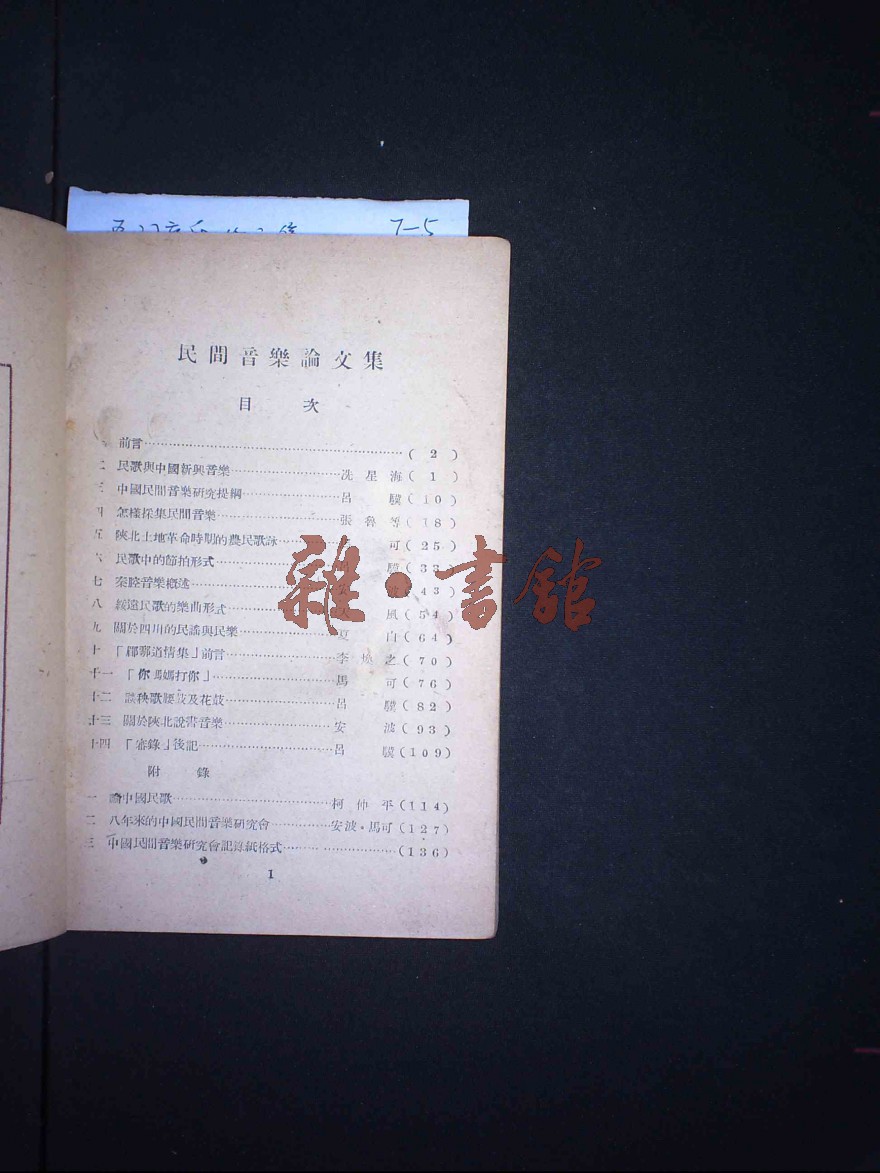 7-5
民間音樂論文集
目 次
前言……(2)
二 民歌與中國新興音樂……冼星海(1)
三 中國民間音樂研究提綱……呂 驥(10)
四 怎樣採集民間音樂……張魯等(18)
五 陝北土地革命時期的農民歌詠……可(25)
六 民歌中的節拍形式……驥(33)
七 秦腔音樂概述……安 波(43)
八 綏遠民歌的樂曲形式……風(54)
九 關於四川的民謠與民樂……夏 白(64)
十 「郿鄠道情集」前言……李煥之(70)
十一 「你媽媽打你」……馬 可(76)
十二 談秧歌腰鼓及花鼓……呂 驥(82)
十三 關於陝北說書音樂……安 波(93)
十四 「審錄」後記……呂 驥(109)
附 錄
一 論中國民歌……柯仲平(114)
二 八年來的中國民間音樂研究會……安波・馬可(127)
三 中國民間音樂研究會記錄紙格式……(136)
1
雜・書館